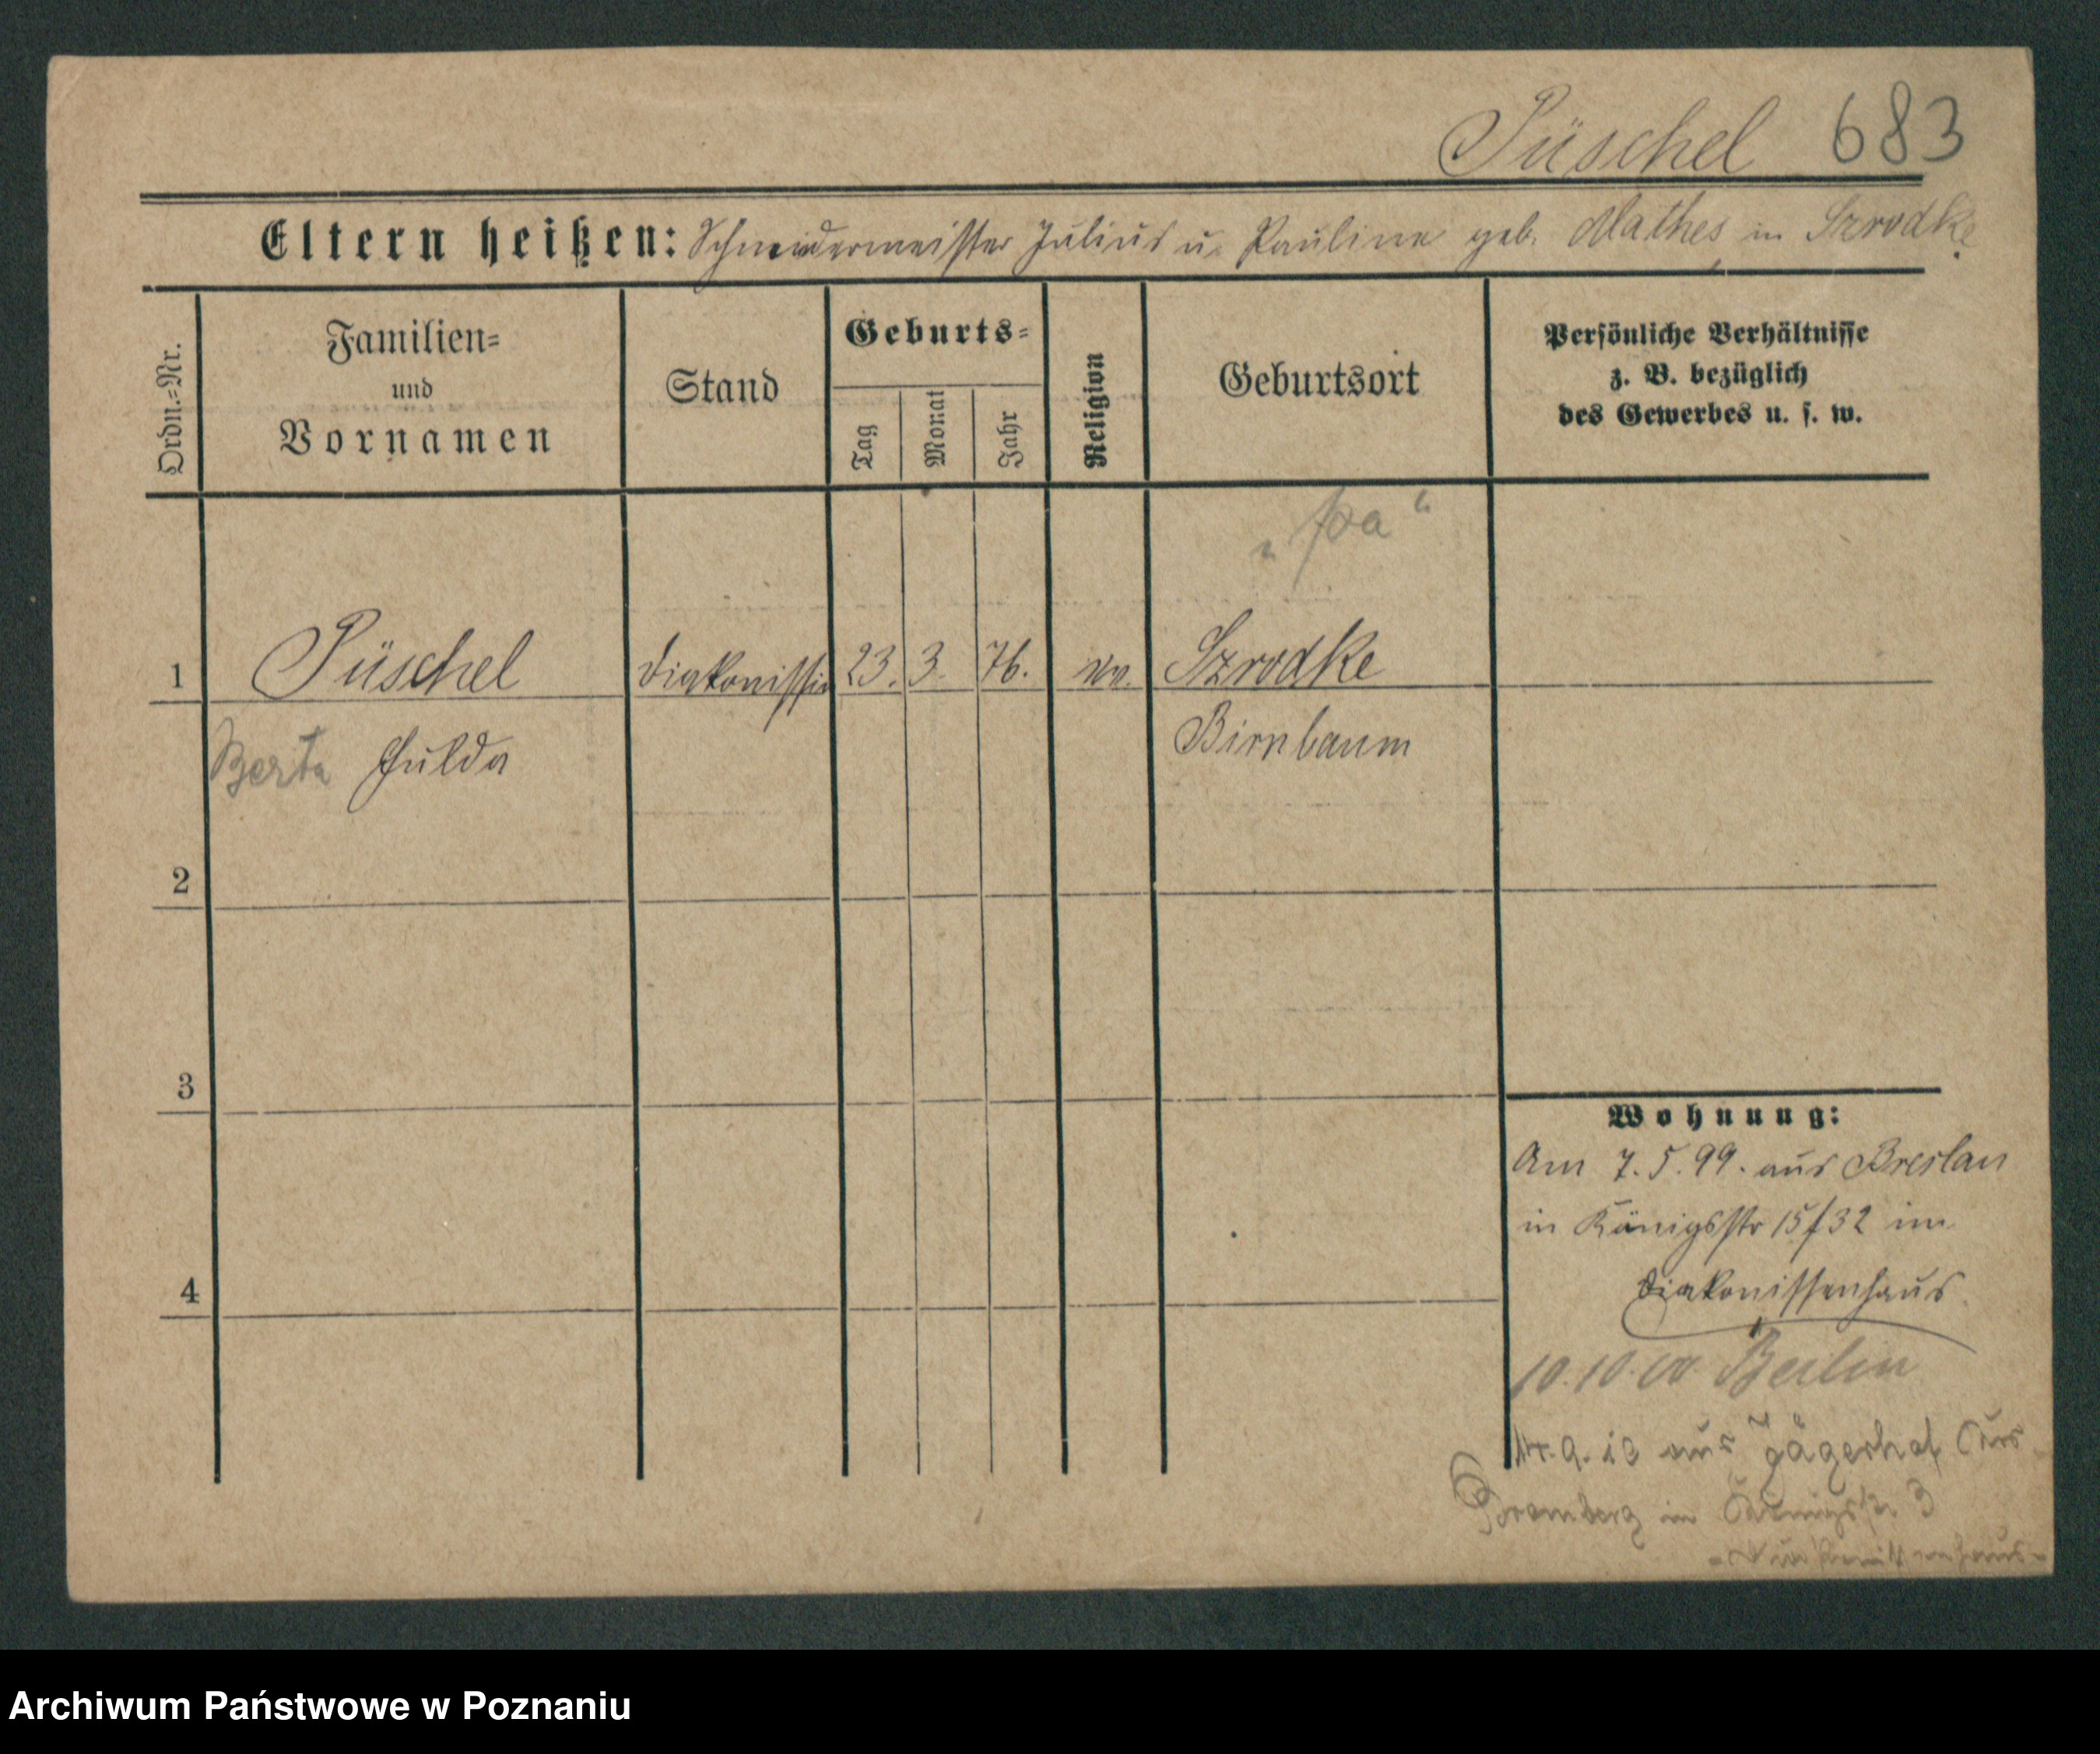 Püschel 683
Eltern heißen: Schneidermeister Julius u. Pauline geb. Mathes in Szrodke
Ordn.=Nr.
Familien=
und
Vornamen
Stand
Geburts=
Tag
Monat
Jahr
Religion
Geburtsort
Persönliche Verhältnisse
z. B. bezüglich
des Gewerbes u. s. w.
1 Püschel Diakonissin 23. 3. 76. ev. Szrodke
Berta Hulda Birnbaum
2
3
4
Wohnung:
Am 7.5.99. aus Breslau
in Königsstr 15/32 im
Diakonissenhaus
10.10.00 Berlin
14.9.10 aus Jägerhof Krs
Bromberg in Königstr 3